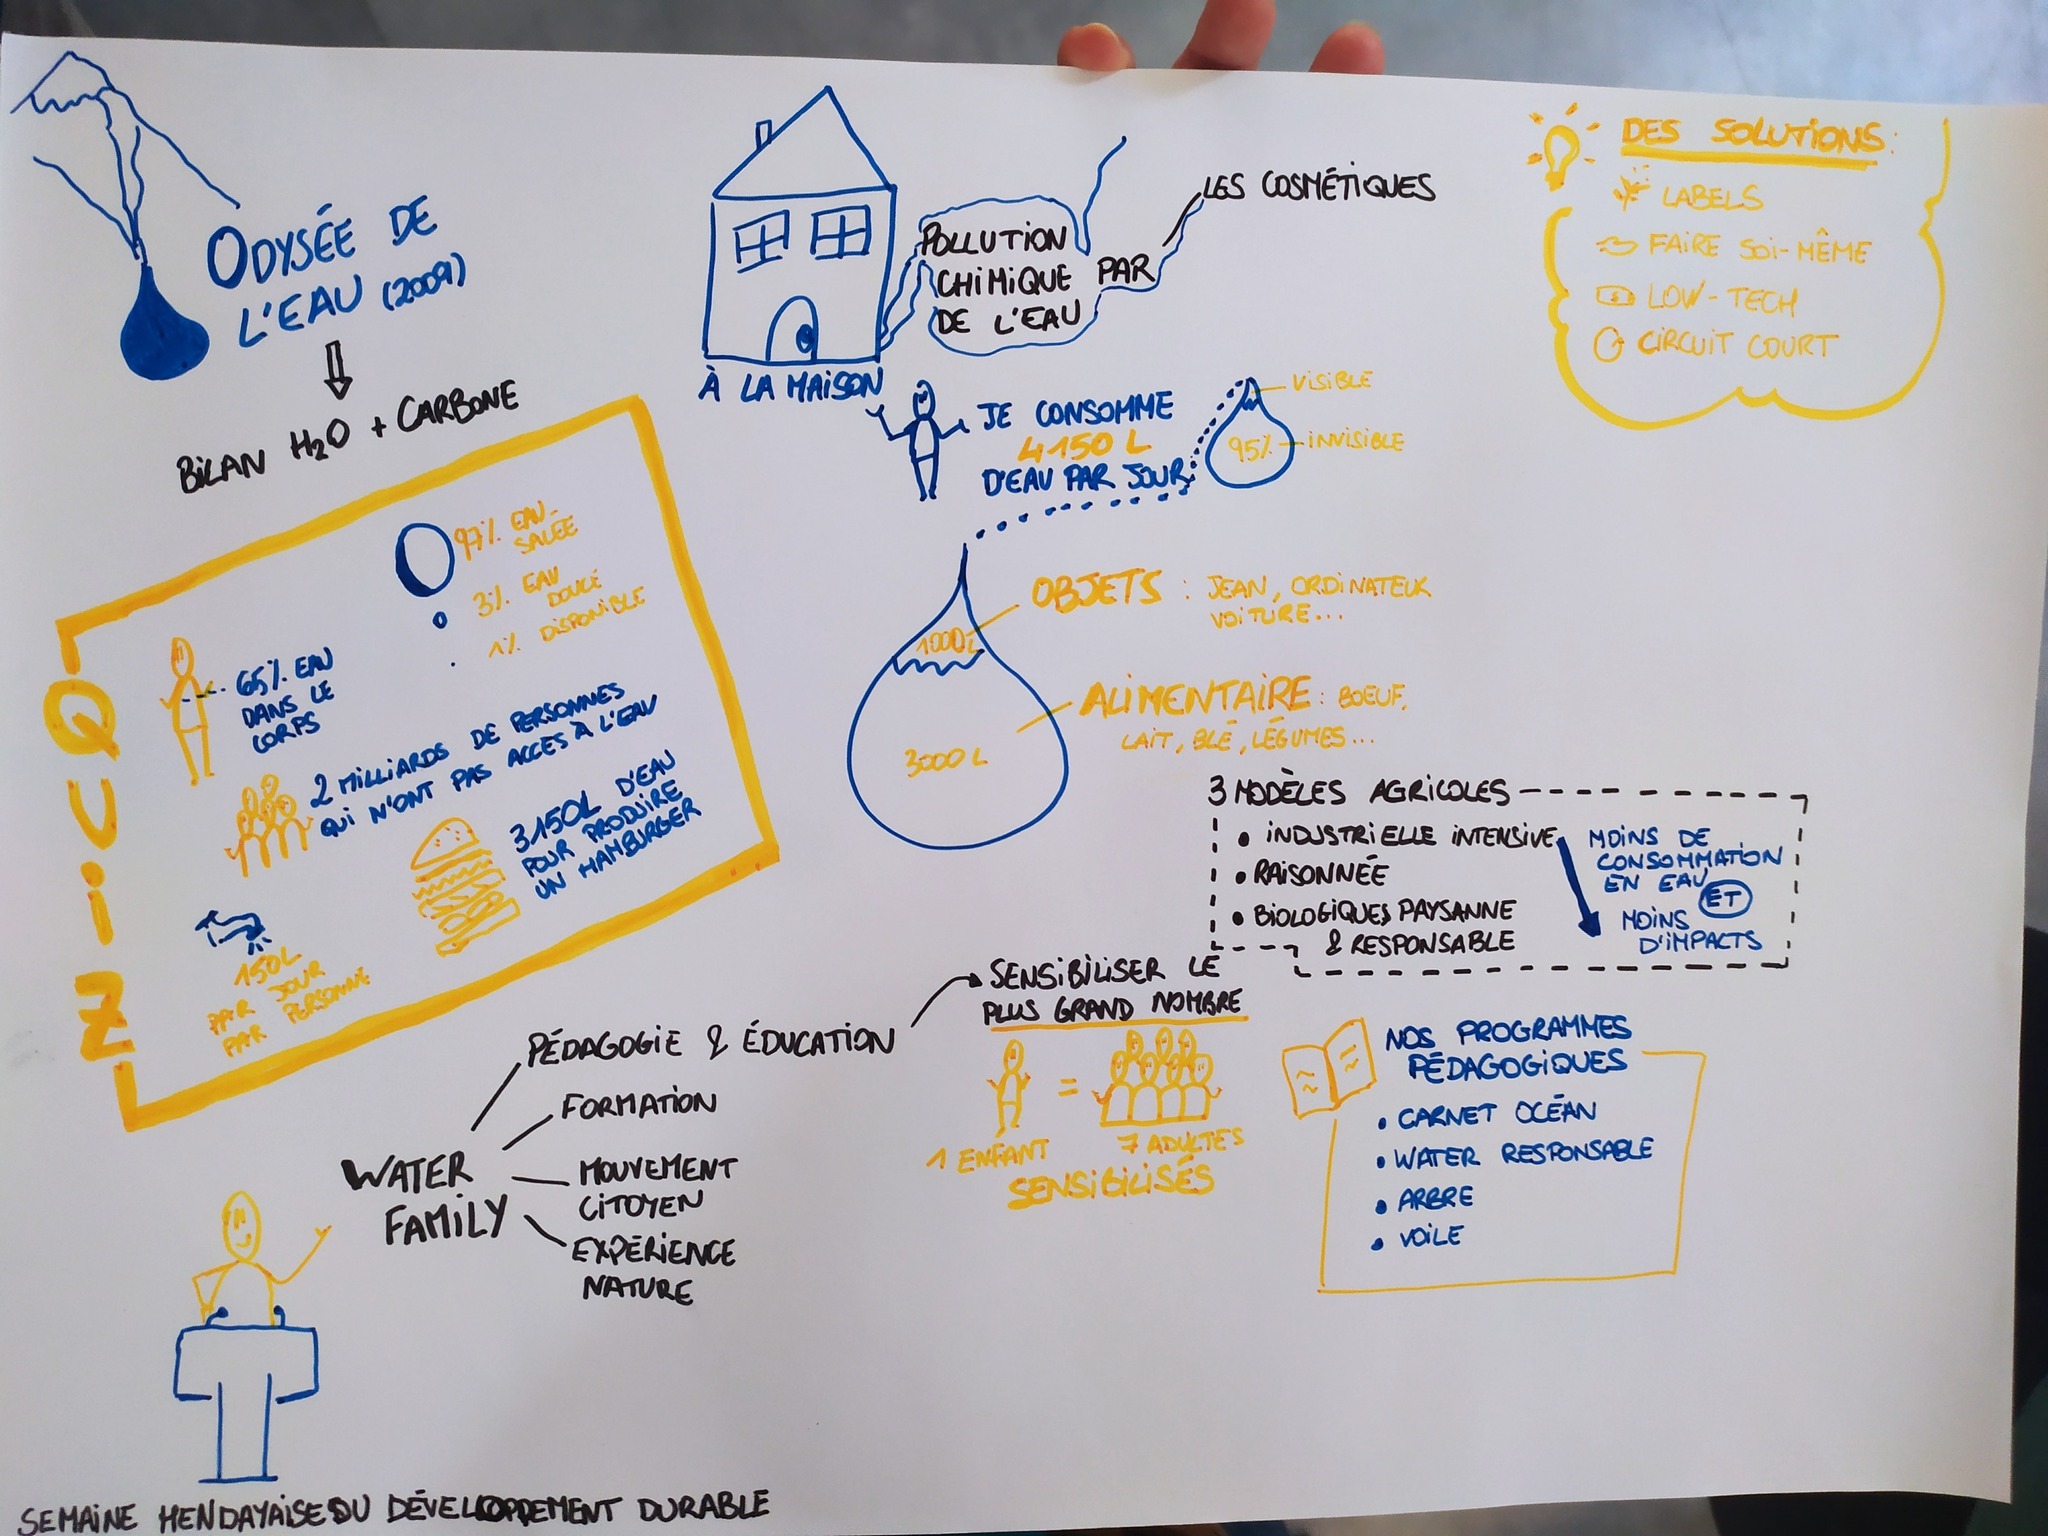 ODYSÉE DE
L'EAU (2009)
BILAN H₂O + CARBONE
QUIZ
97% EAU
SALÉE
3% EAU
DOUCE
1% DISPONIBLE
65% EAU
DANS LE
CORPS
2 MILLIARDS DE PERSONNES
QUI N'ONT PAS ACCES À L'EAU
3150L D'EAU
POUR PRODUIRE
UN HAMBURGER
150L
PAR JOUR
PAR PERSONNE
À LA MAISON
POLLUTION
CHIMIQUE PAR
DE L'EAU
LES COSMÉTIQUES
JE CONSOMME
4150 L
D'EAU PAR JOUR
VISIBLE
95% INVISIBLE
1000L
OBJETS : JEAN, ORDINATEUR
VOITURE...
3000L
ALIMENTAIRE : BOEUF,
LAIT, BLÉ, LÉGUMES...
DES SOLUTIONS:
LABELS
FAIRE SOI-MÊME
LOW-TECH
CIRCUIT COURT
3 MODÈLES AGRICOLES
• INDUSTRIELLE INTENSIVE
• RAISONNÉE
• BIOLOGIQUES PAYSANNE
& RESPONSABLE
MOINS DE
CONSOMMATION
EN EAU ET
MOINS
D'IMPACTS
WATER
FAMILY
PÉDAGOGIE & ÉDUCATION
FORMATION
MOUVEMENT
CITOYEN
EXPÉRIENCE
NATURE
SENSIBILISER LE
PLUS GRAND NOMBRE
=
1 ENFANT
7 ADULTES
SENSIBILISÉS
NOS PROGRAMMES
PÉDAGOGIQUES
• CARNET OCÉAN
• WATER RESPONSABLE
• ARBRE
• VOILE
SEMAINE HENDAYAISE DU DÉVELOPPEMENT DURABLE